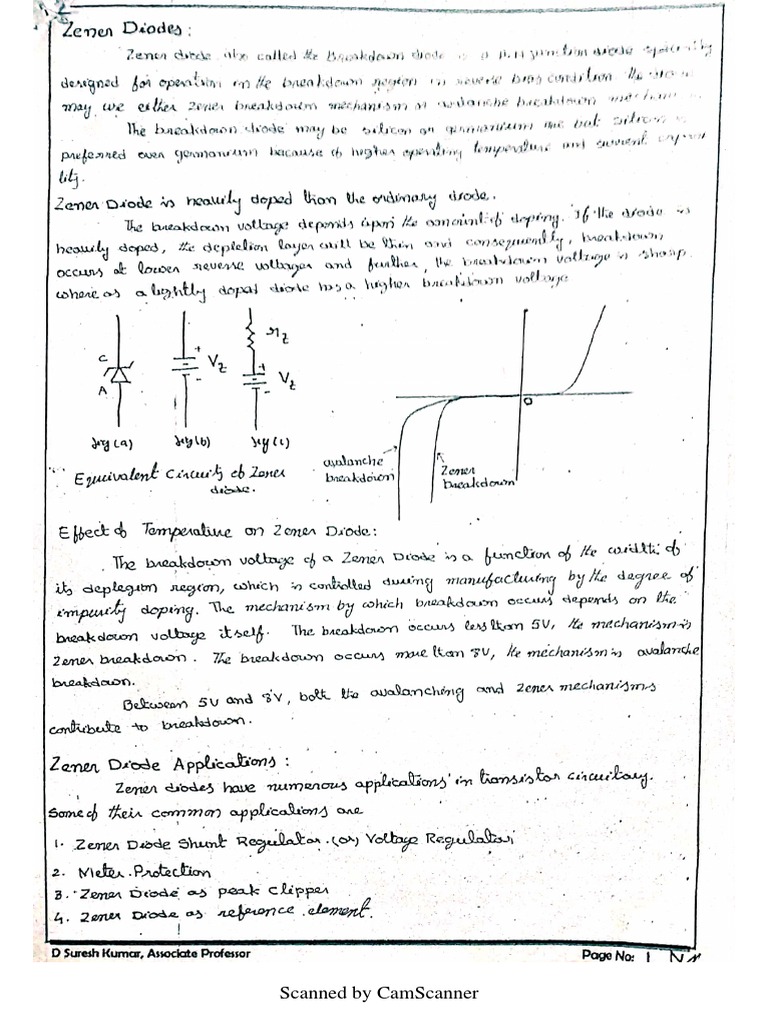 Zener Diodes:
Zener diode also called the Breakdown diode is a P.N junction diode specially
designed for operation in the breakdown region in reverse bias condition. The
may we either Zener breakdown mechanism or avalanche breakdown
The breakdown diode may be silicon or germaneum one but silicon is
preferred over germaneum because of higher operating temperature and current capabi
lity.
Zener Diode is heavily doped than the ordinary diode.
The breakdown voltage depends upon the amount of doping. If the diode is
heavily doped, the depletion layer will be thin and consequently, breakdown
occurs at lower reverse voltages and further, the breakdown voltage is sharp
where as a lightly doped diode has a higher breakdown voltage
C
A
+
VZ
-
rZ
+
VZ
-
fig(a) fig(b) fig(c)
Equivalent Circuits of Zener
diode.
O
avalanche
breakdown
Zener
breakdown
Effect of Temperature on Zener Diode:
The breakdown voltage of a Zener Diode is a function of the width of
its deplegion region, which is controlled during manufacturing by the degree of
impurity doping. The mechanism by which breakdown occurs depends on the
breakdown voltage itself. The breakdown occurs less than 5V, the mechanism is
Zener breakdown. The breakdown occurs more than 8V, the mechanism is avalanche
breakdown.
Between 5V and 8V, both the avalanching and Zener mechanisms
contribute to breakdown.
Zener Diode Applications:
Zener diodes have numerous applications in transistor circuitary.
Some of their common applications are
1. Zener Diode Shunt Regulator (or) Voltage Regulator
2. Meter Protection
3. Zener Diode as peak clipper
4. Zener Diode as reference element.
D Suresh Kumar, Associate Professor Page No: 1
Scanned by CamScanner